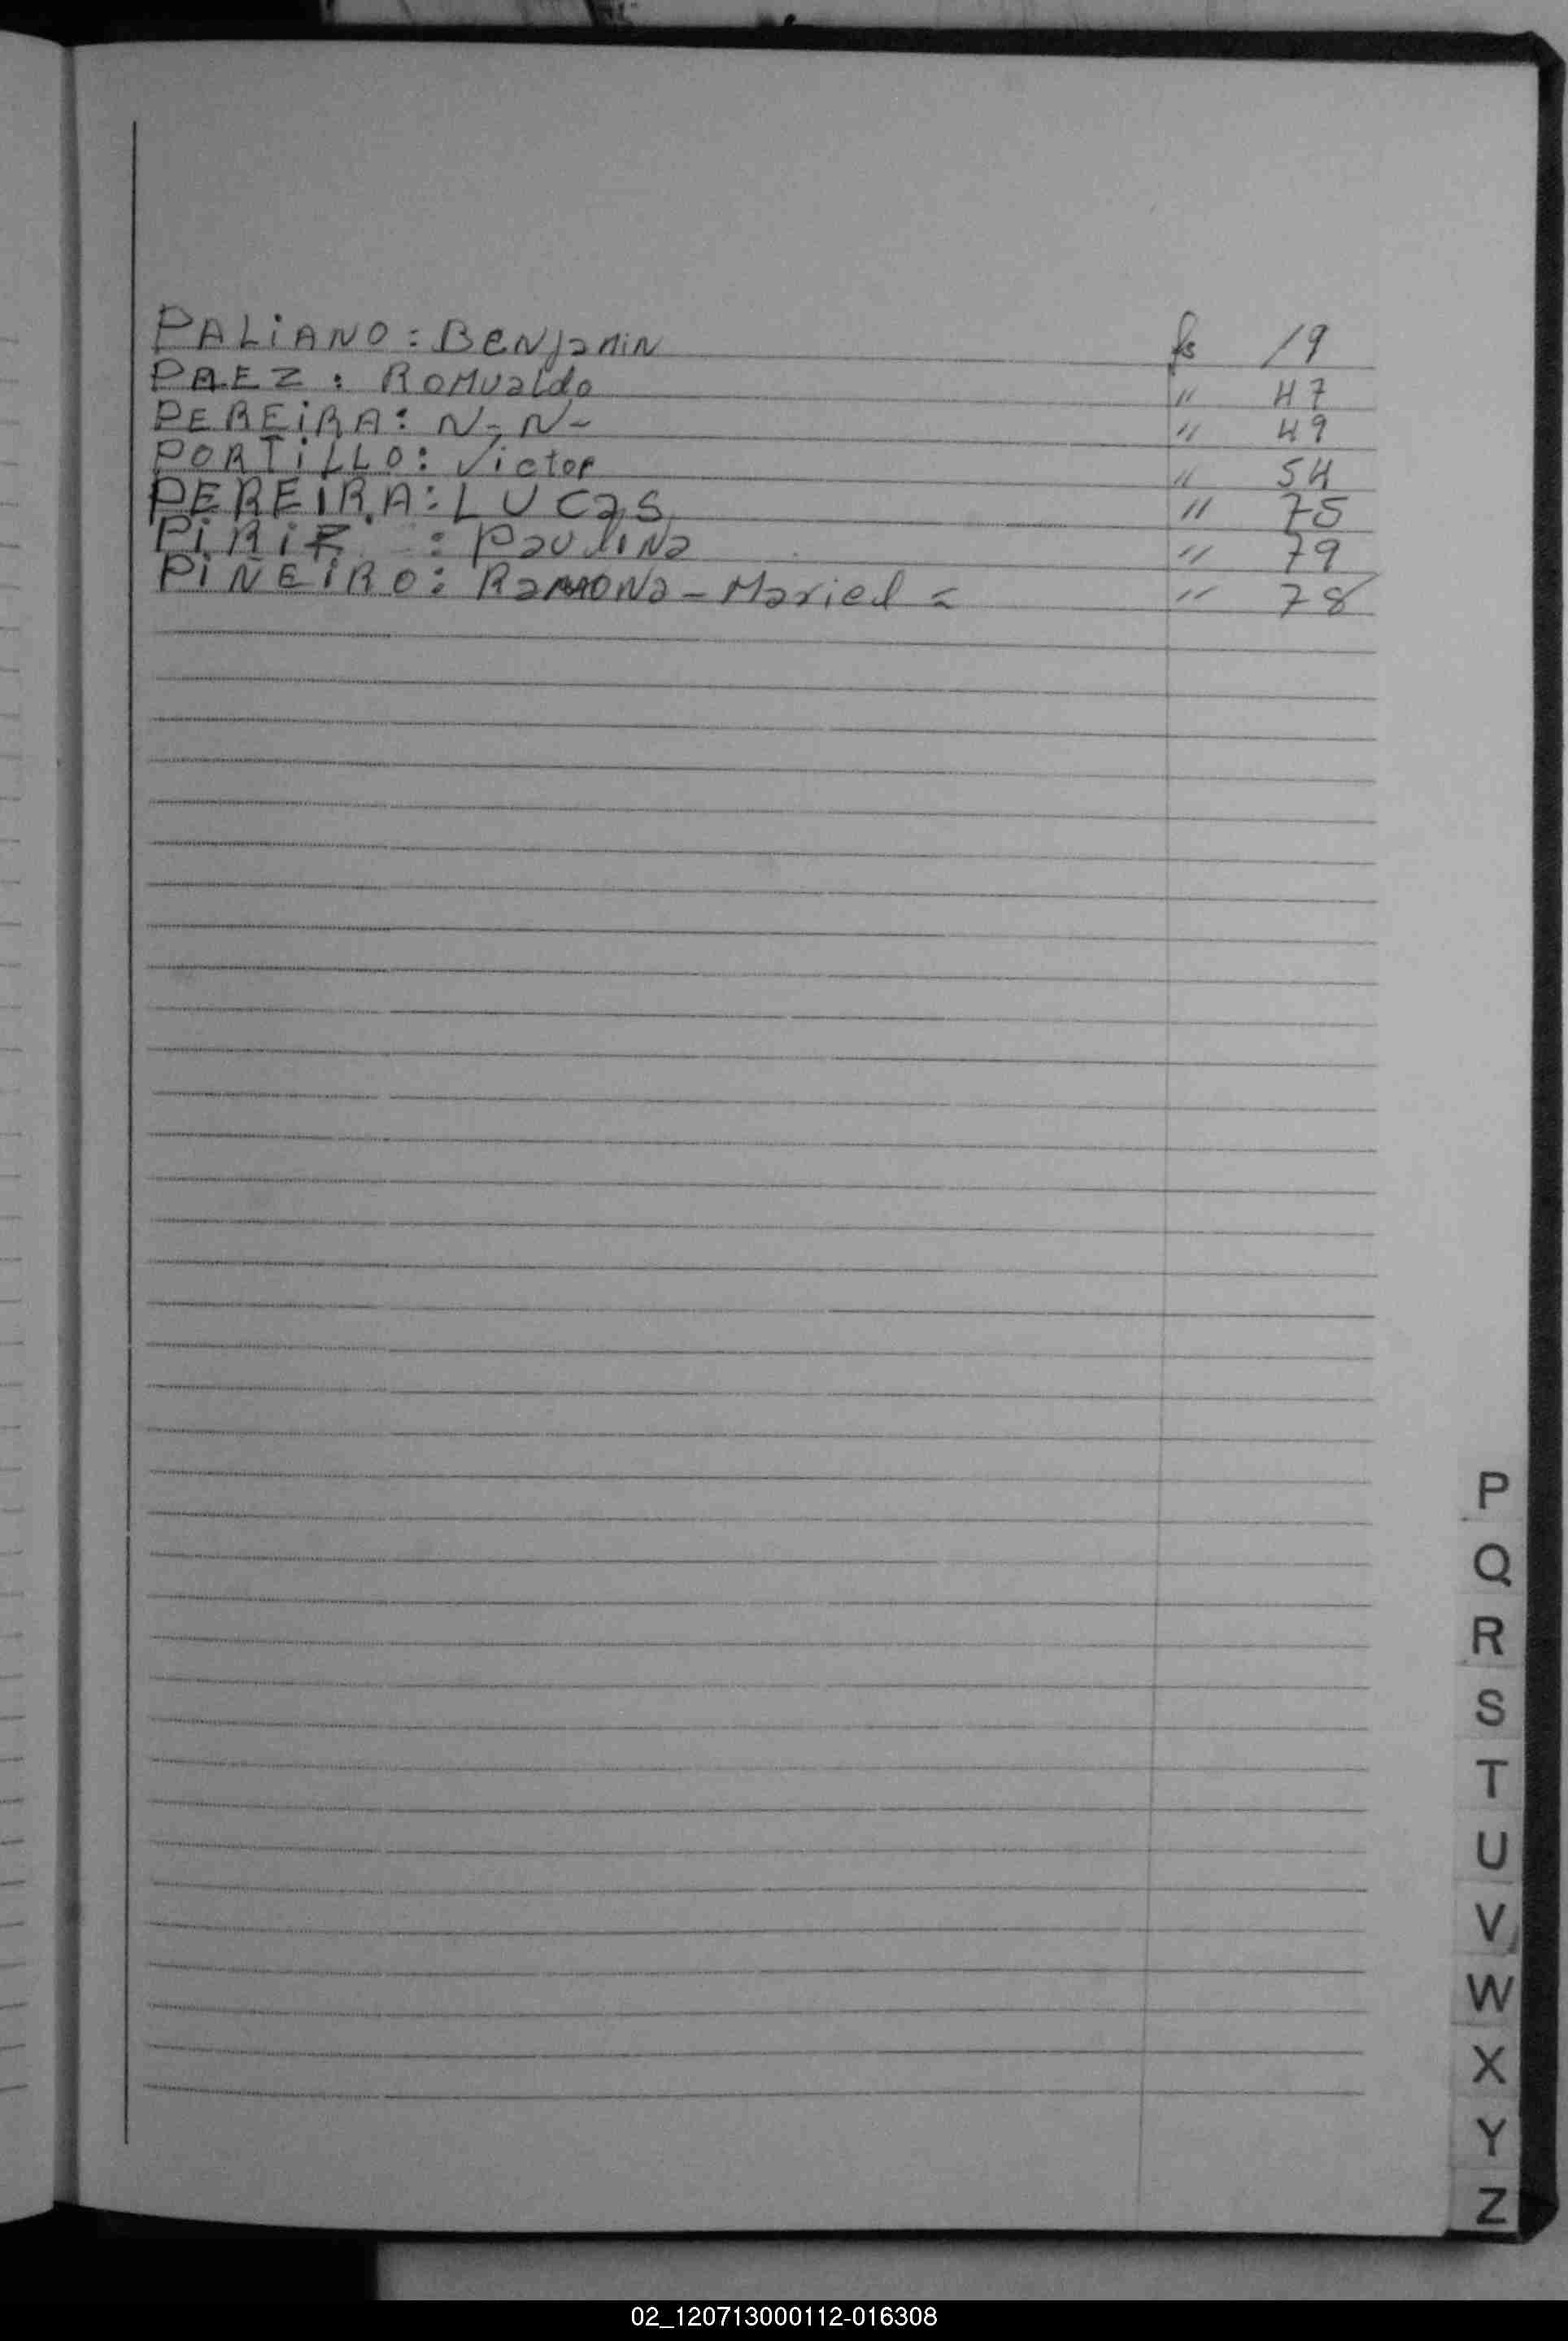 PALiANO: BENJamiN fs 19
PAEZ: ROMUaldo " 47
PEREiRA: N-N- " 49
PORTiLLO: Victor " 54
PEREIRA: LUCas " 75
PiRiZ: PauliNa " 79
PiÑEiRO: RamoNa - Mariel = " 78
P
Q
R
S
T
U
V
W
X
Y
Z
02_120713000112-016308